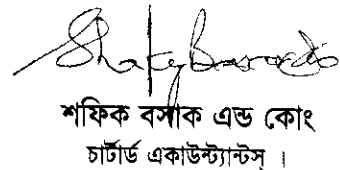 শফিক বসাক এন্ড কোং
চার্টার্ড একাউন্ট্যান্টস্ ।